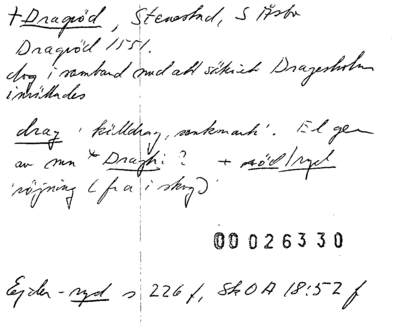 + Dragröd, Stenestad, S Åsbo
Dragröd 1551.
dog i samband med att säteriet Dragesholm
inrättades
drag 'källdrag, sankmark'. El gen
av mn *Draghi? + röd/ryd
'röjning (fra i skog)'
00026330
Ejder-ryd s 226 f, SkOA 18:52 f